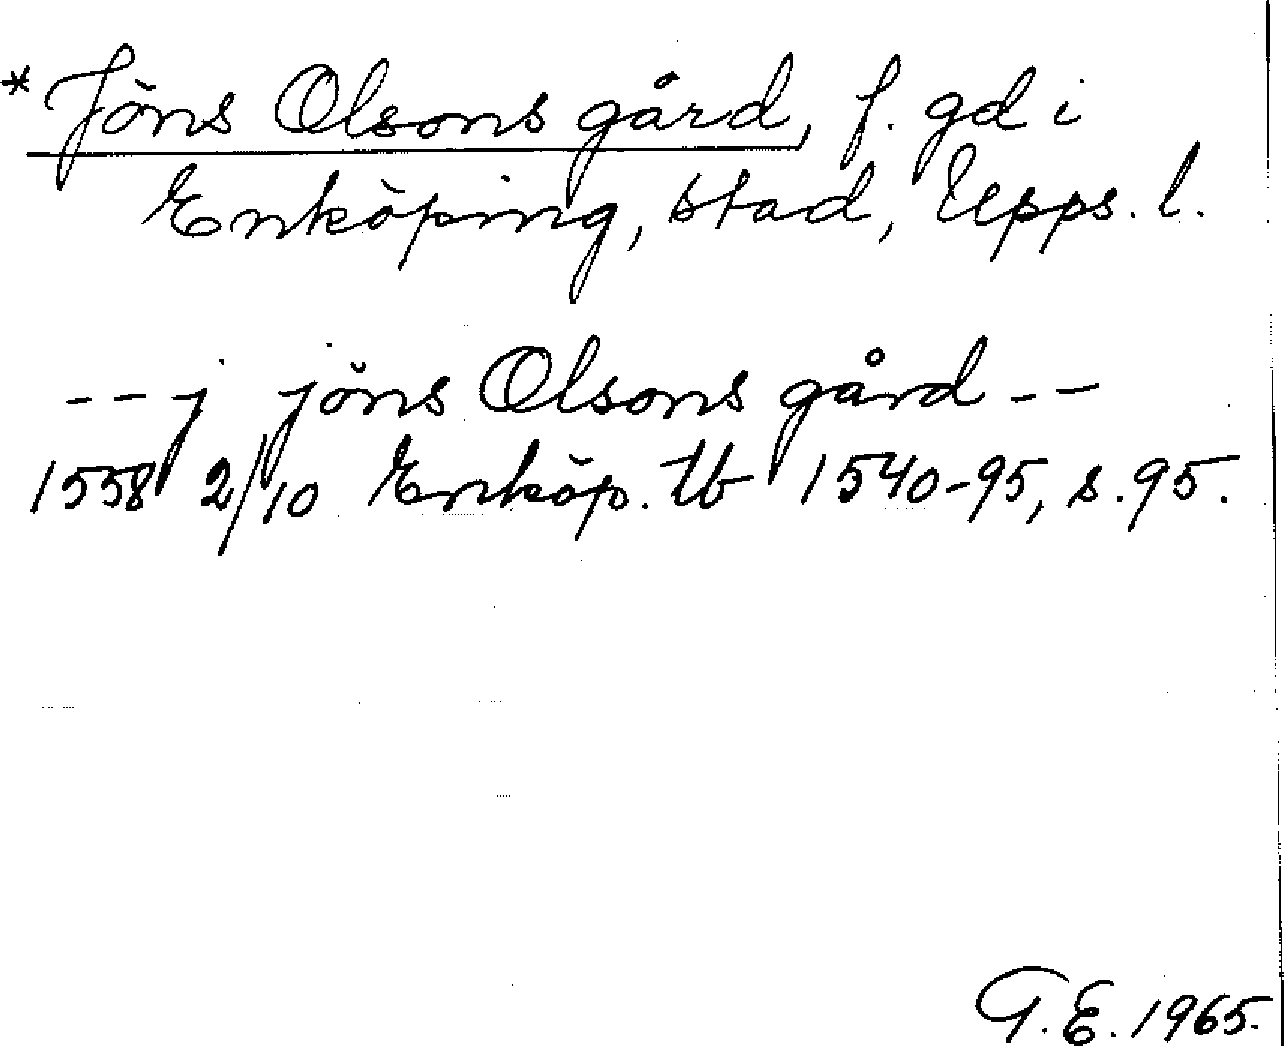 * Jöns Olsons gård, f. gd i
Enköping, stad, Upps. l.
-- j jöns Olsons gård --
1558 2/10 Enköp. tb 1540-95, s. 95.
G.E. 1965.